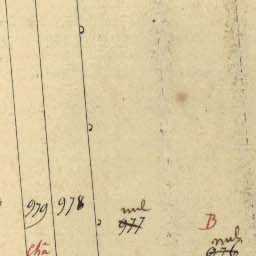 979 978 nul
977 B
Chã nul
976